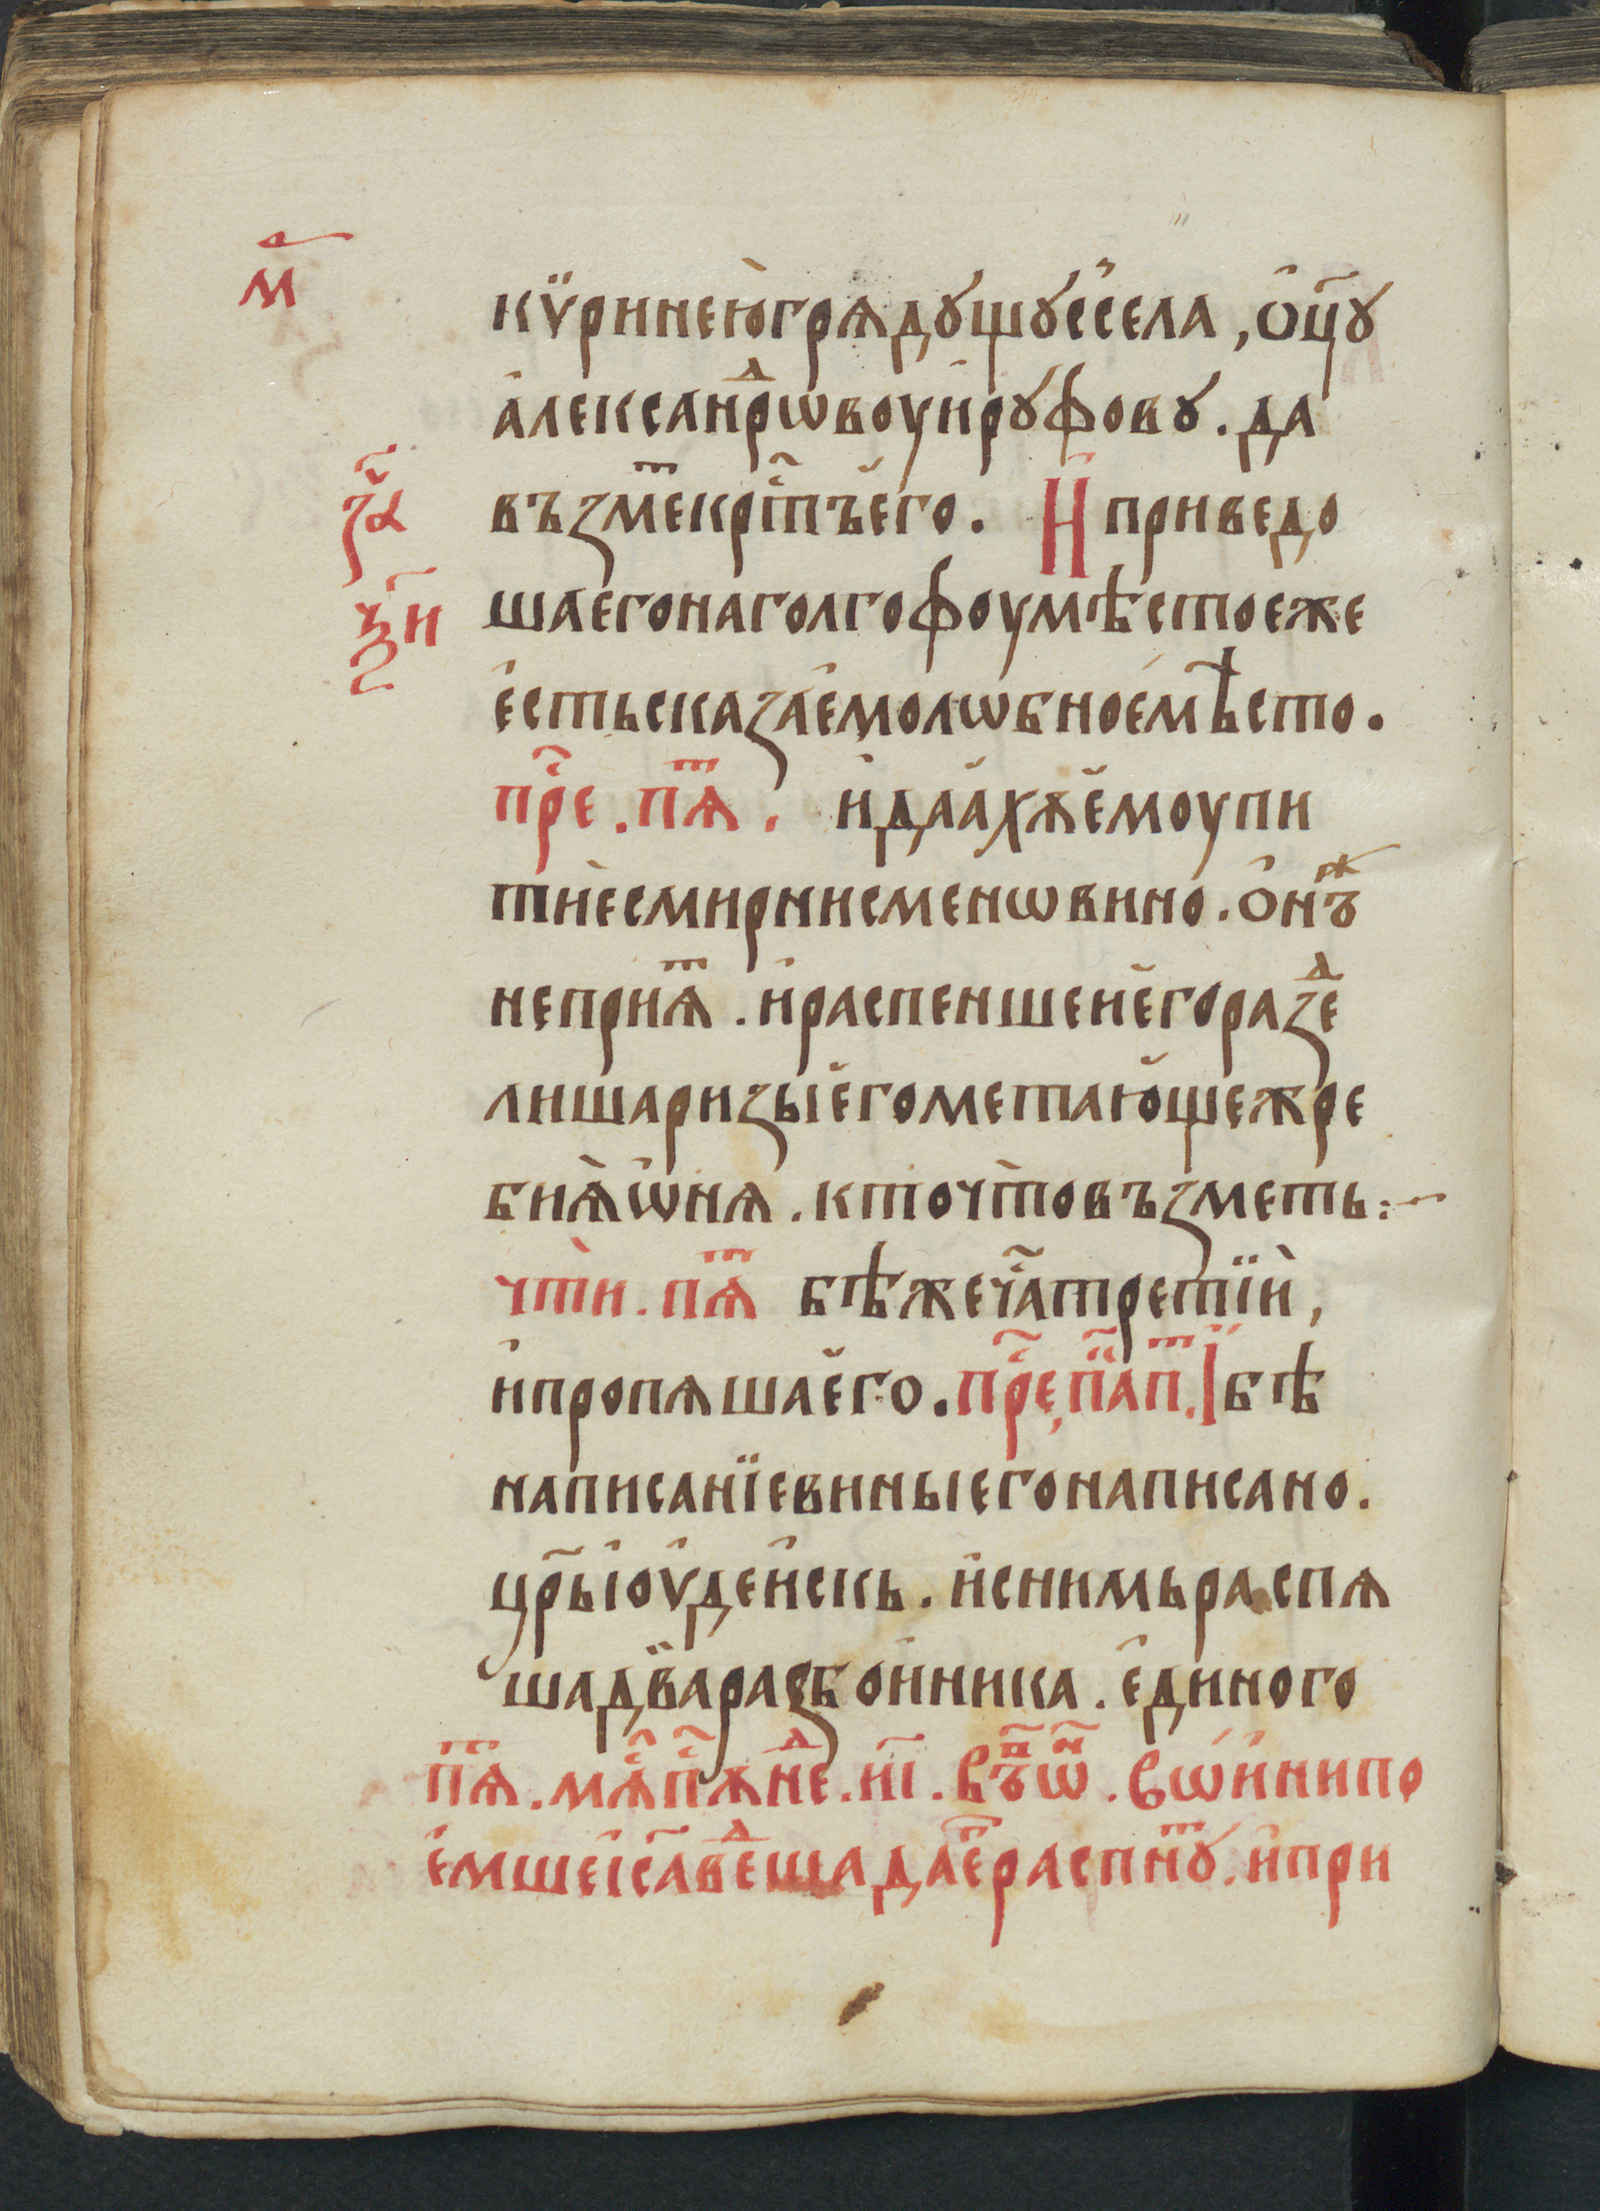 м҃
кѵ̈ринею̀грѧдꙋшꙋссела, ѻц҃ꙋ
александрѡвоуируфовꙋ. да
възмⷮекрⷭ҇тъего. И приведо
шаегонаголгоѳоумѣстоеже
естьсказаемолѡбноемѣсто.
прⷣе. пѧⷮ. идаахѫемоупи
тиесмирнисменѡвино. ѻнъⷤ
неприѧⷮ. ираспеншеиегоразⷣе
лишаризыегометающежре
биѧѡнѧ. кточтовъзметь:~
чти. пѧⷮ бѣжечⷭ҇атретїи,
ипропѧшаего. прⷣе, паⷭ҇пⷮ. І бѣ
написанїевиныегонаписано.
цр҃ьіоудейскь. иснимьраспѧ
шадваразбойника. единого
пѧⷮ. мѧⷭ҇пⷭ҇ѫнеⷣ. иі҃. въⷫѡⷩ. вѡинипо
емшеіс҃авеⷣшадаеⷢраспнꙋⷮ. ипри
з҃а
ѯ҃и